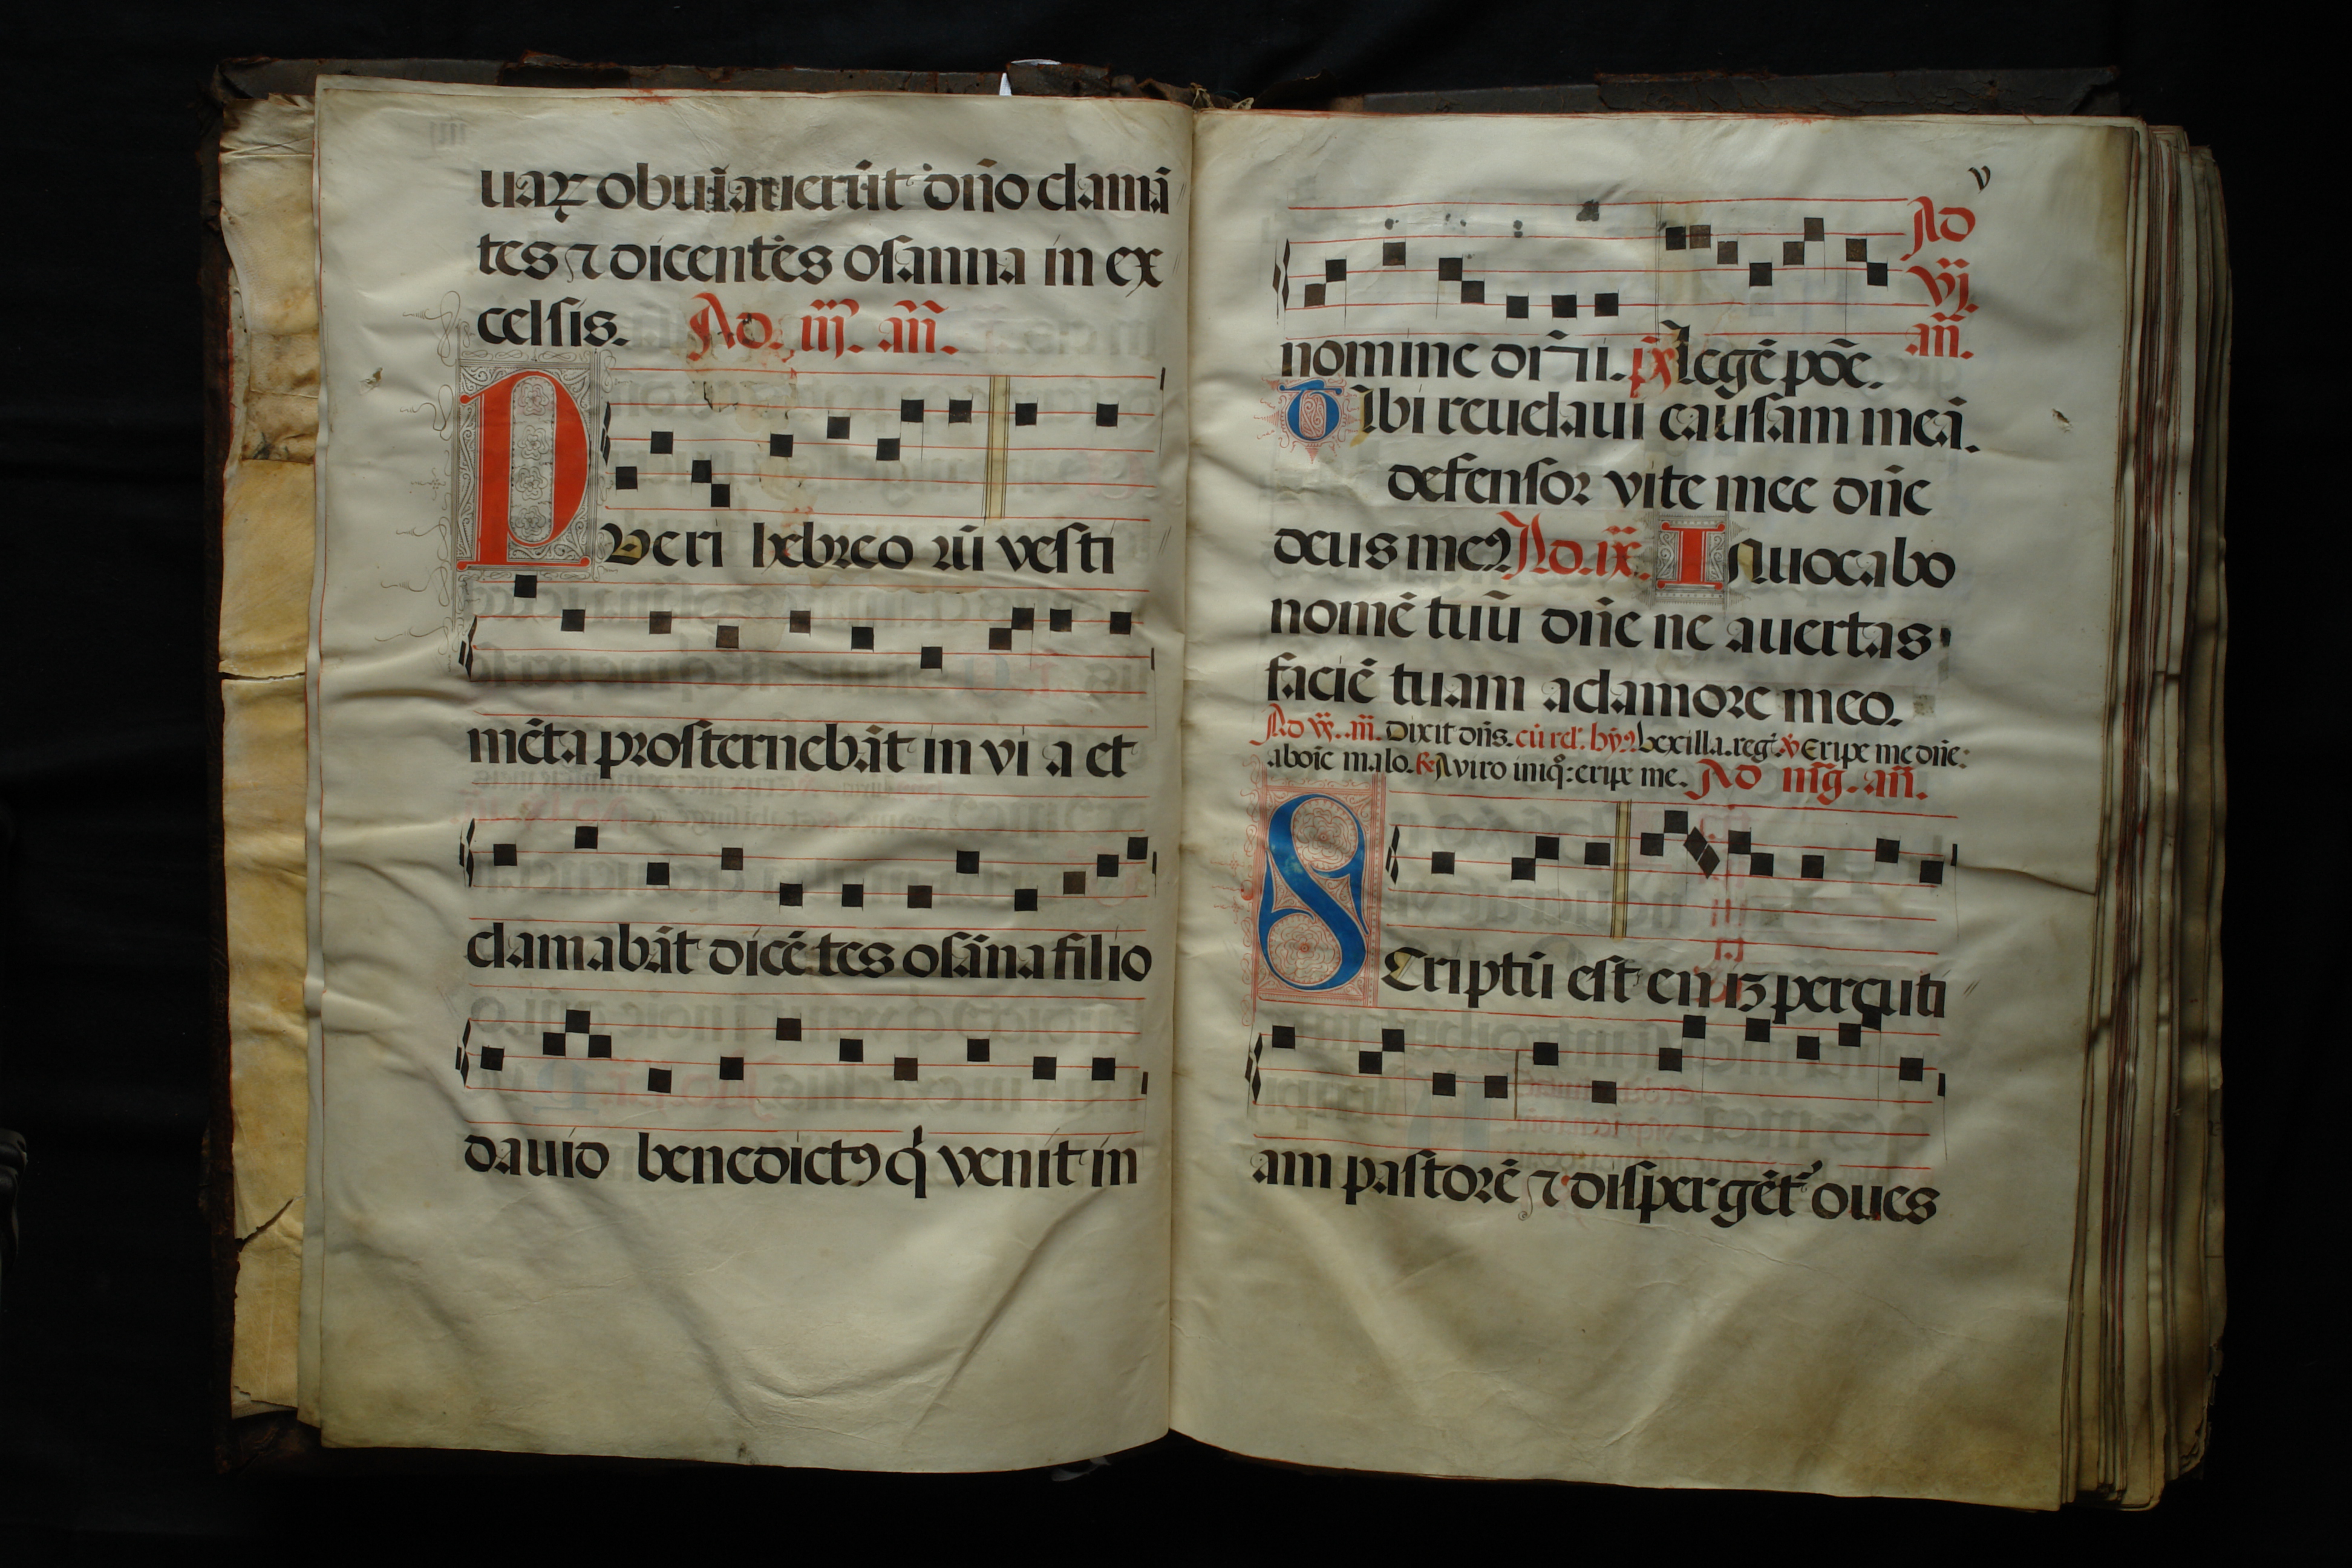 uaꝝ obuiauerūt dn̄o clamā
tes ⁊ dicentes osanna in ex
celsis. Ad. iij. an̄.
Pueri hebreo rū vesti
mēta prosternebāt in vi a et
clamabāt dicē tes osāna filio
dauid benedictꝰ q̇ venit in
v
Ad
vj.
an̄.
nomine domini. p̄s Legē pōe.
Tibi reuelaui causam meā.
defensor vite mee dn̄e
deus meꝰ Ad. ix. Inuocabo
nomē tuū dn̄e ne auertas
faciē tuam aclamore meo.
Ad vr̄. an̄. Dixit dn̄s. cū rel'. hyꝰ. vexilla. regꝭ. ℣ Eripe me dn̄e:
aboīe malo. ℟ Aviro iniq̊: eripe me. Ad mg̃. an̄.
Scriptū est eniꝫ percuti
am pastorē ⁊ dispergēt᷑ oues